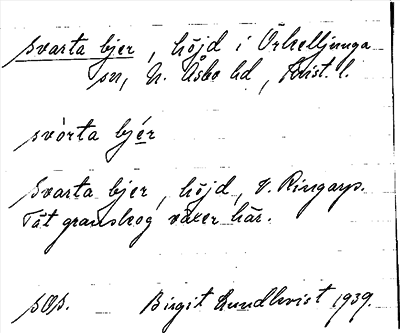 svarta bjer, höjd i Örkelljunga
sn, N. Åsbo hd, Krist. l.
svòrta bjér
Svarta bjer, höjd, V. Ringarp.
Tät granskog växer här.
Birgit Lundkvist 1939.